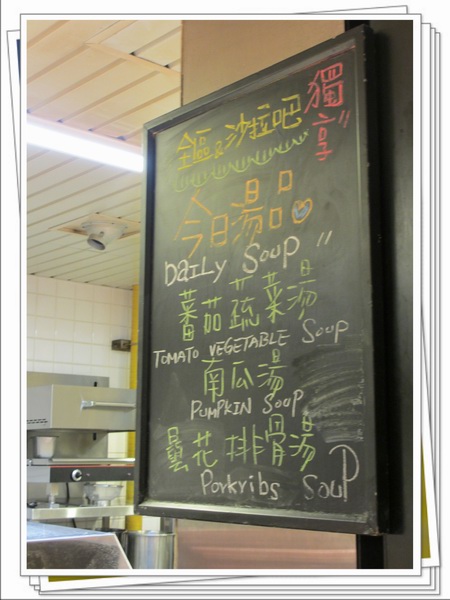 獨享"
全區2沙拉吧
今日湯品
DAILY Soup "
蕃茄蔬菜湯
TOMATO VEGETABLE Soup
南瓜湯
PUMPKIN Soup
曇花排骨湯
Porkribs SouP